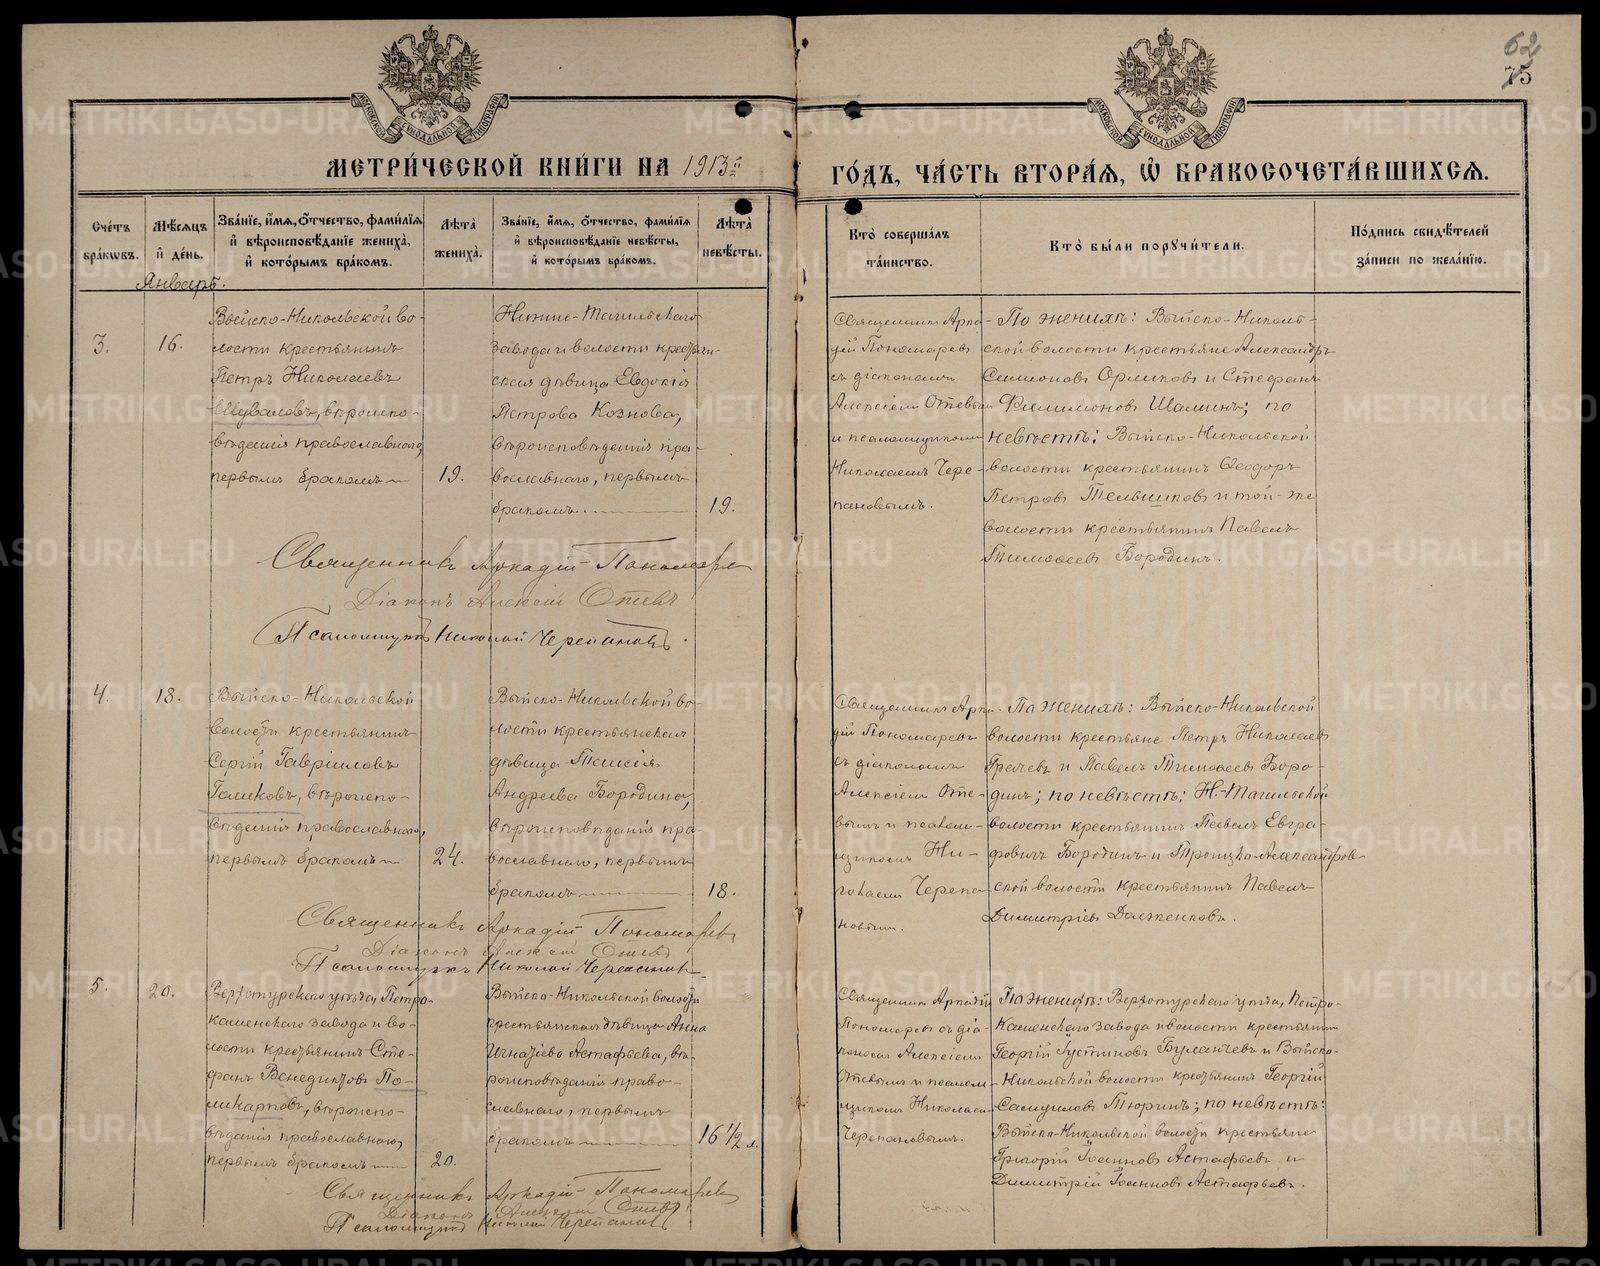 62
75
МОСКОВСКОЙ СѴНОДАЛЬНОЙ ТИПОГРАФІИ
МОСКОВСКОЙ СѴНОДАЛЬНОЙ ТИПОГРАФІИ
МЕТРИ́ЧЕСКОЙ КНИ́ГИ НА 1913й
ГО́ДЪ, ЧА́СТЬ ВТОРА́Я, Ѽ БРАКОСОЧЕТА́ВШИХСЯ.
Сче́тъ бра́кѡвъ.
Мѣ́сяцъ и҆ де́нь.
Зва́нїе, и҆́мя, ѻ҆́тчество, фами́лїя и҆ вѣроисповѣ́данїе жениха̀, и҆ кото́рымъ бра́комъ.
Лѣ́та жениха̀.
Зва́нїе, и҆́мя, ѻ҆́тчество, фами́лїя и҆ вѣроисповѣ́данїе невѣ́сты, и҆ кото́рымъ бра́комъ.
Лѣ́та невѣ́сты.
Кто̀ соверша́лъ та́инство.
Кто̀ бы́ли порꙋчи́тели.
По́дпись свидѣ́телей за́писи по жела́нїю.
Январь.
3.
16.
Выйско-Никольской во-
лости крестьянинъ
Петръ Николаевъ
Шуваловъ, вѣроиспо-
вѣданія православнаго,
первымъ бракомъ
19.
Нижне-Тагильскаго
завода и волости крестьян-
ская дѣвица Евдокія
Петрова Козлова,
вѣроисповѣданія пра-
вославнаго, первымъ
бракомъ.
19.
Священникъ Арка-
дій Пономаревъ
съ діакономъ
Алексіемъ Отевымъ
и псаломщикомъ
Николаемъ Чере-
пановымъ.
По женихѣ: Выйско-Николь-
ской волости крестьяне Александръ
Симіоновъ Орликовъ и Стефанъ
Филимоновъ Шаминъ; по
невѣстѣ: Выйско-Никольской
волости крестьянинъ Ѳеодоръ
Петровъ Тельшиковъ и той-же
волости крестьянинъ Павелъ
Тимоѳеевъ Бородинъ.
Священникъ Аркадій Пономаревъ
Діаконъ Алексій Отевъ
Псаломщикъ Николай Черепановъ.
4.
18.
Выйско-Никольской
волости крестьянинъ
Сергій Гавріиловъ
Голиковъ, вѣроиспо-
вѣданія православнаго,
первымъ бракомъ
24.
Выйско-Никольской во-
лости крестьянская
дѣвица Таисія
Андреева Бородина,
вѣроисповѣданія пра-
вославнаго, первымъ
бракомъ
18.
Священникъ Арка-
дій Пономаревъ
съ діакономъ
Алексіемъ Оте-
вымъ и псалом-
щикомъ Ни-
колаемъ Черепа-
новымъ.
По женихѣ: Выйско-Никольской
волости крестьяне Петръ Николаевъ
Грачевъ и Павелъ Тимоѳеевъ Боро-
динъ; по невѣстѣ: Н.-Тагильской
волости крестьянинъ Павелъ Евгра-
фовичъ Бородинъ и Троицко-Александров-
ской волости крестьянинъ Павелъ
Димитріевъ Долженковъ.
Священникъ Аркадій Пономаревъ
Діаконъ Алексій Отевъ
Псаломщикъ Николай Черепановъ
5.
20.
Верхотурскаго уѣзда, Петро-
каменскаго завода и во-
лости крестьянинъ Сте-
фанъ Венедиктовъ По-
ликарповъ, вѣроиспо-
вѣданія православнаго,
первымъ бракомъ
20.
Выйско-Никольской волости
крестьянская дѣвица Анна
Игнатіева Астафьева, вѣ-
роисповѣданія право-
славнаго, первымъ
бракомъ
16 1/2 л.
Священникъ Аркадій
Пономаревъ съ діа-
кономъ Алексіемъ
Отевымъ и псалом-
щикомъ Николаемъ
Черепановымъ.
По женихѣ: Верхотурскаго уѣзда, Петро-
каменскаго завода и волости крестьянинъ
Георгій Іустиновъ Буланчевъ и Выйско-
Никольской волости крестьянинъ Георгій
Самуиловъ Тюринъ; по невѣстѣ:
Выйско-Никольской волости крестьяне
Григорій Іоанновъ Астафьевъ и
Димитрій Іоанновъ Астафьевъ.
Священникъ Аркадій Пономаревъ
Діаконъ Алексій Отевъ
Псаломщикъ Николай Черепановъ
METRIKI.GASO-URAL.RU